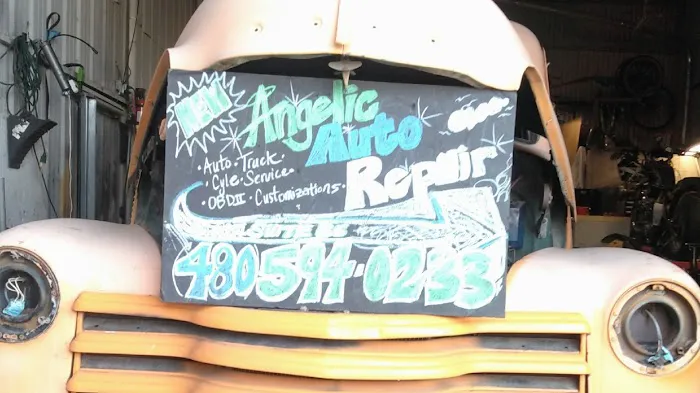 NEW
Angelic
Auto
Repair
• Auto • Truck •
• Cyle • Service •
• OBDII • Customizations •
480 594-0233